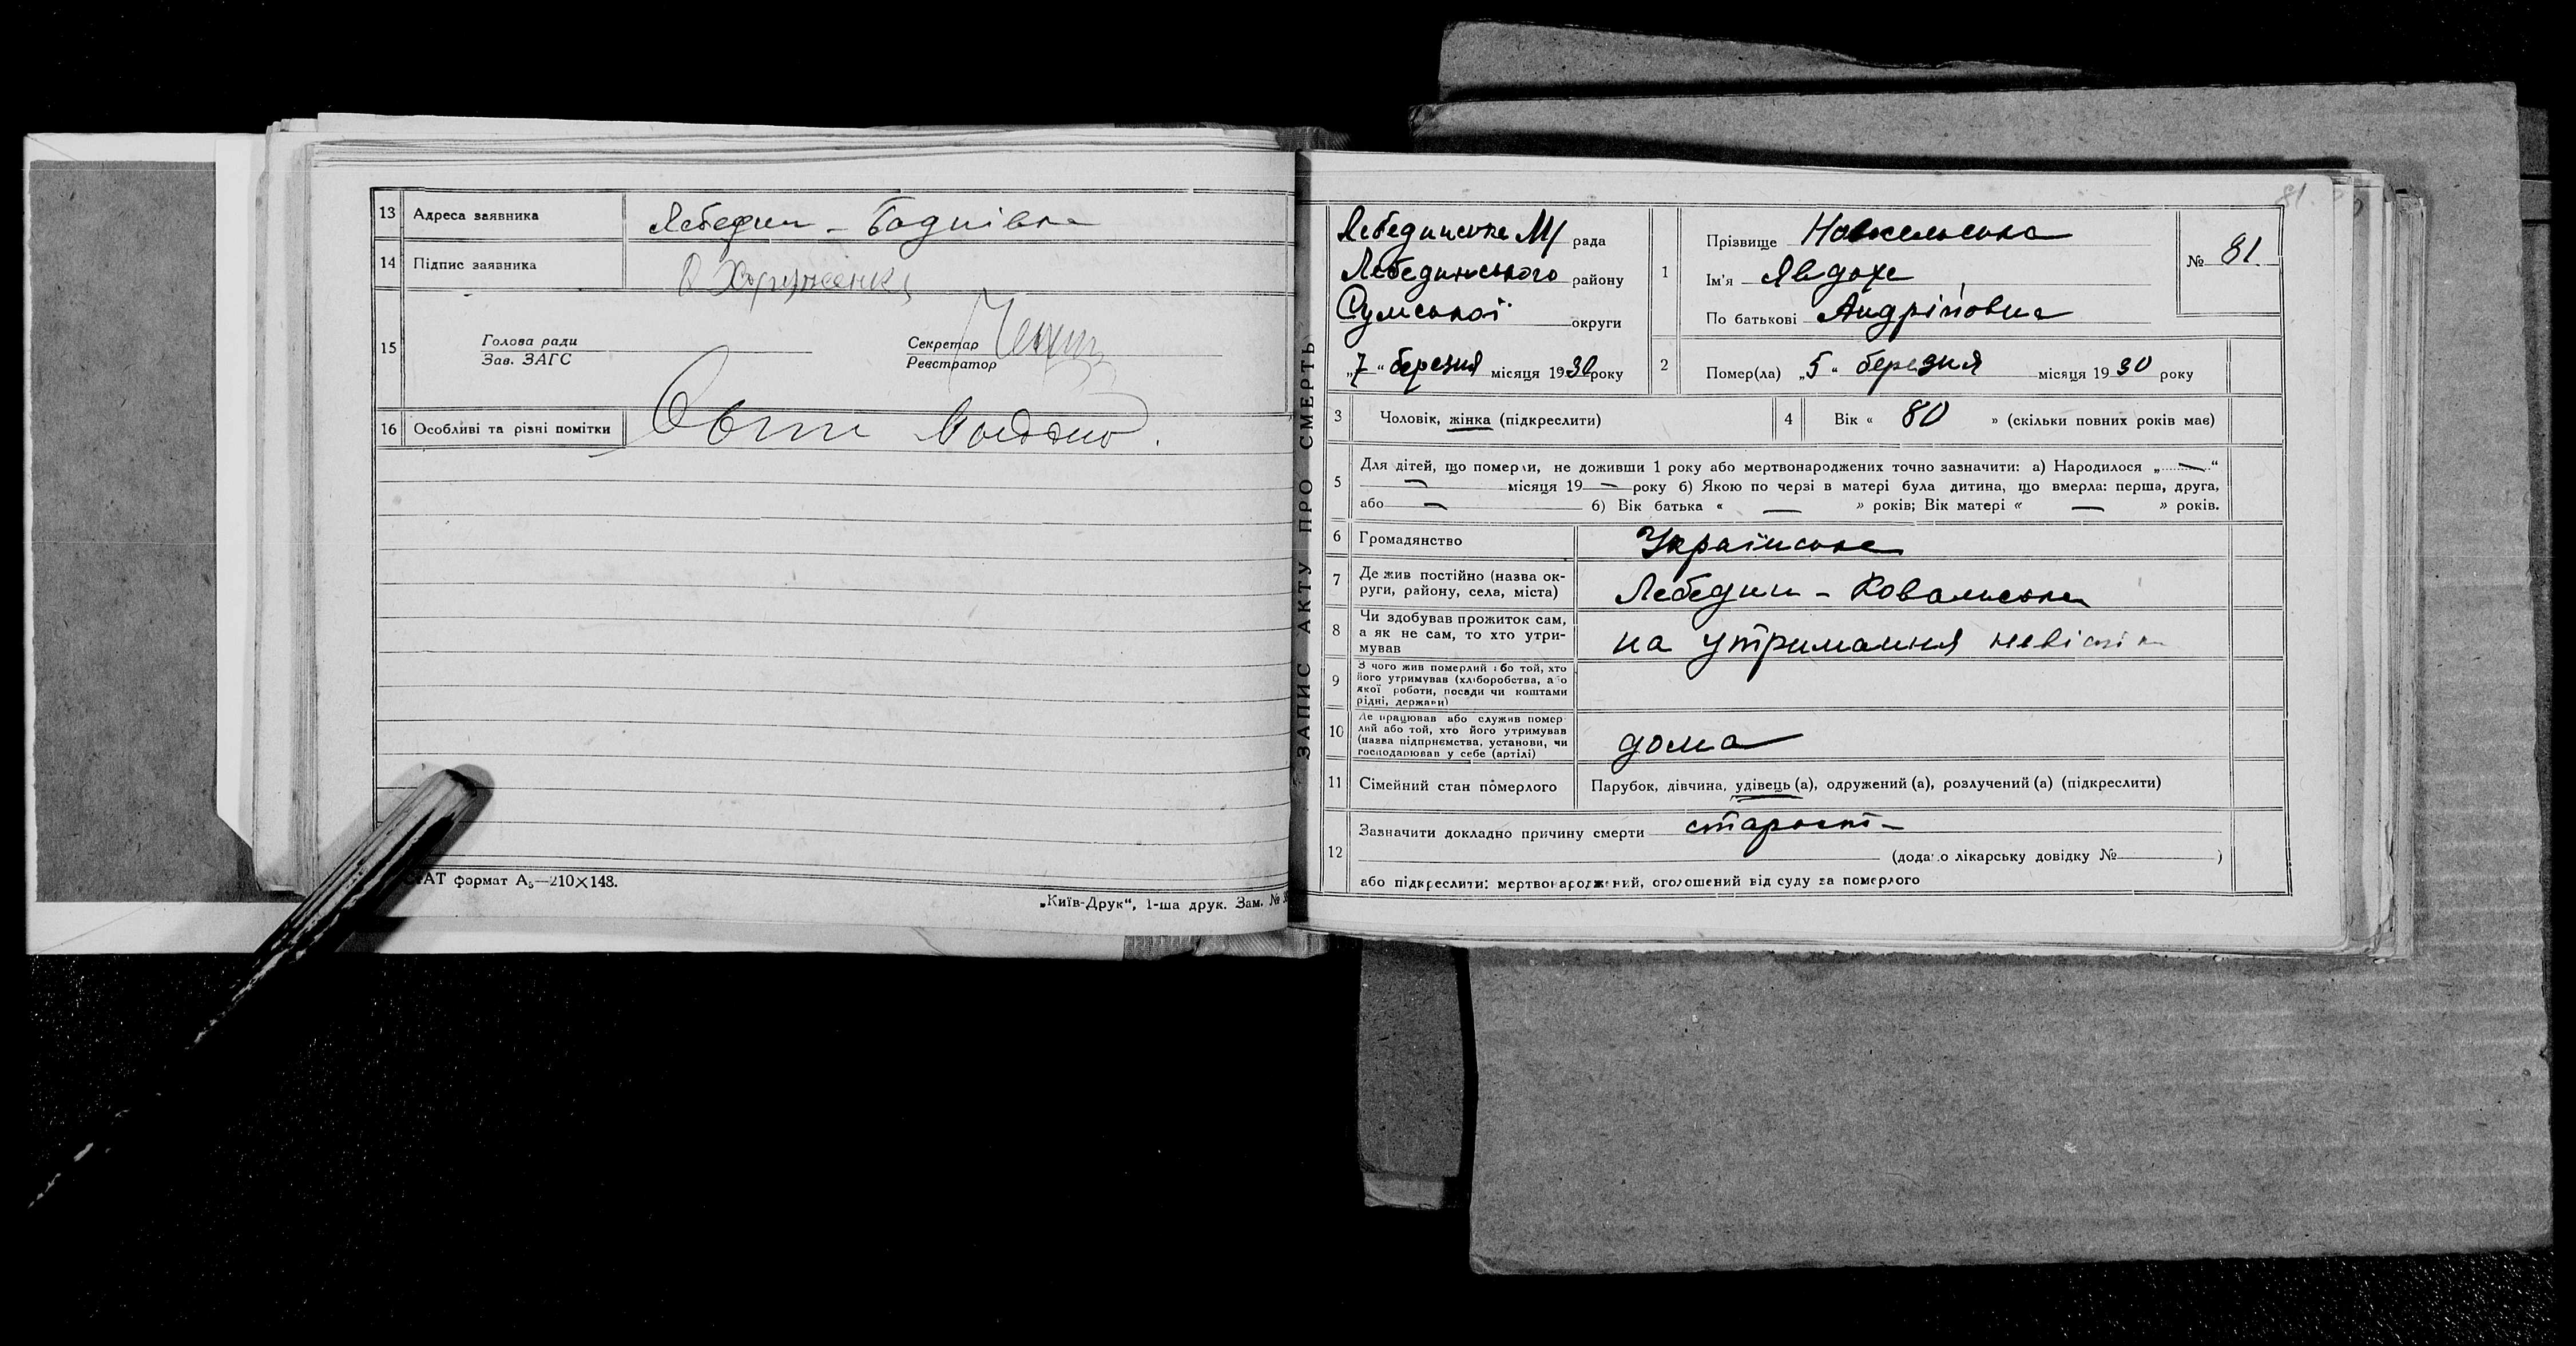 13 Адреса заявника Лебедин - Баднівка
14 Підпис заявника
15 Голова ради
Зав. ЗАГС
Секретар
Реєстратор
16 Особливі та різні помітки
формат А5—210×148.
„Київ-Друк“, 1-ша друк. Зам. №
ЗАПИС АКТУ ПРО СМЕРТЬ
81.
Лебединська М/ рада
Лебединського району
Сумської округи
„7“ березня місяця 1930 року
1 Прізвище
Ім'я Явдоха
По батькові Андріївна
№ 81
2 Помер(ла) „5“ березня місяця 1930 року
3 Чоловік, жінка (підкреслити)
4 Вік « 80 » (скільки повних років має)
5 Для дітей, що померли, не доживши 1 року або мертвонароджених точно зазначити: а) Народилося „—“
— місяця 19 — року б) Якою по черзі в матері була дитина, що вмерла: перша, друга,
або — б) Вік батька « — » років; Вік матері « — » років.
6 Громадянство Українська
7 Де жив постійно (назва ок-
руги, району, села, міста) Лебедин - Ковальська
8 Чи здобував прожиток сам,
а як не сам, то хто утри-
мував на утримання невістки
9 З чого жив померлий або той, хто
його утримував (хліборобства, або
якої роботи, посади чи коштами
рідні, держави)
10 Де працював або служив помер
лий або той, хто його утримував
(назва підприємства, установи, чи
господарював у себе (артілі) дома
11 Сімейний стан померлого Парубок, дівчина, удівець (а), одружений (а), розлучений (а) (підкреслити)
12 Зазначити докладно причину смерти старост-
(додано лікарську довідку № )
або підкреслити: мертвонароджений, оголошений від суду за померлого